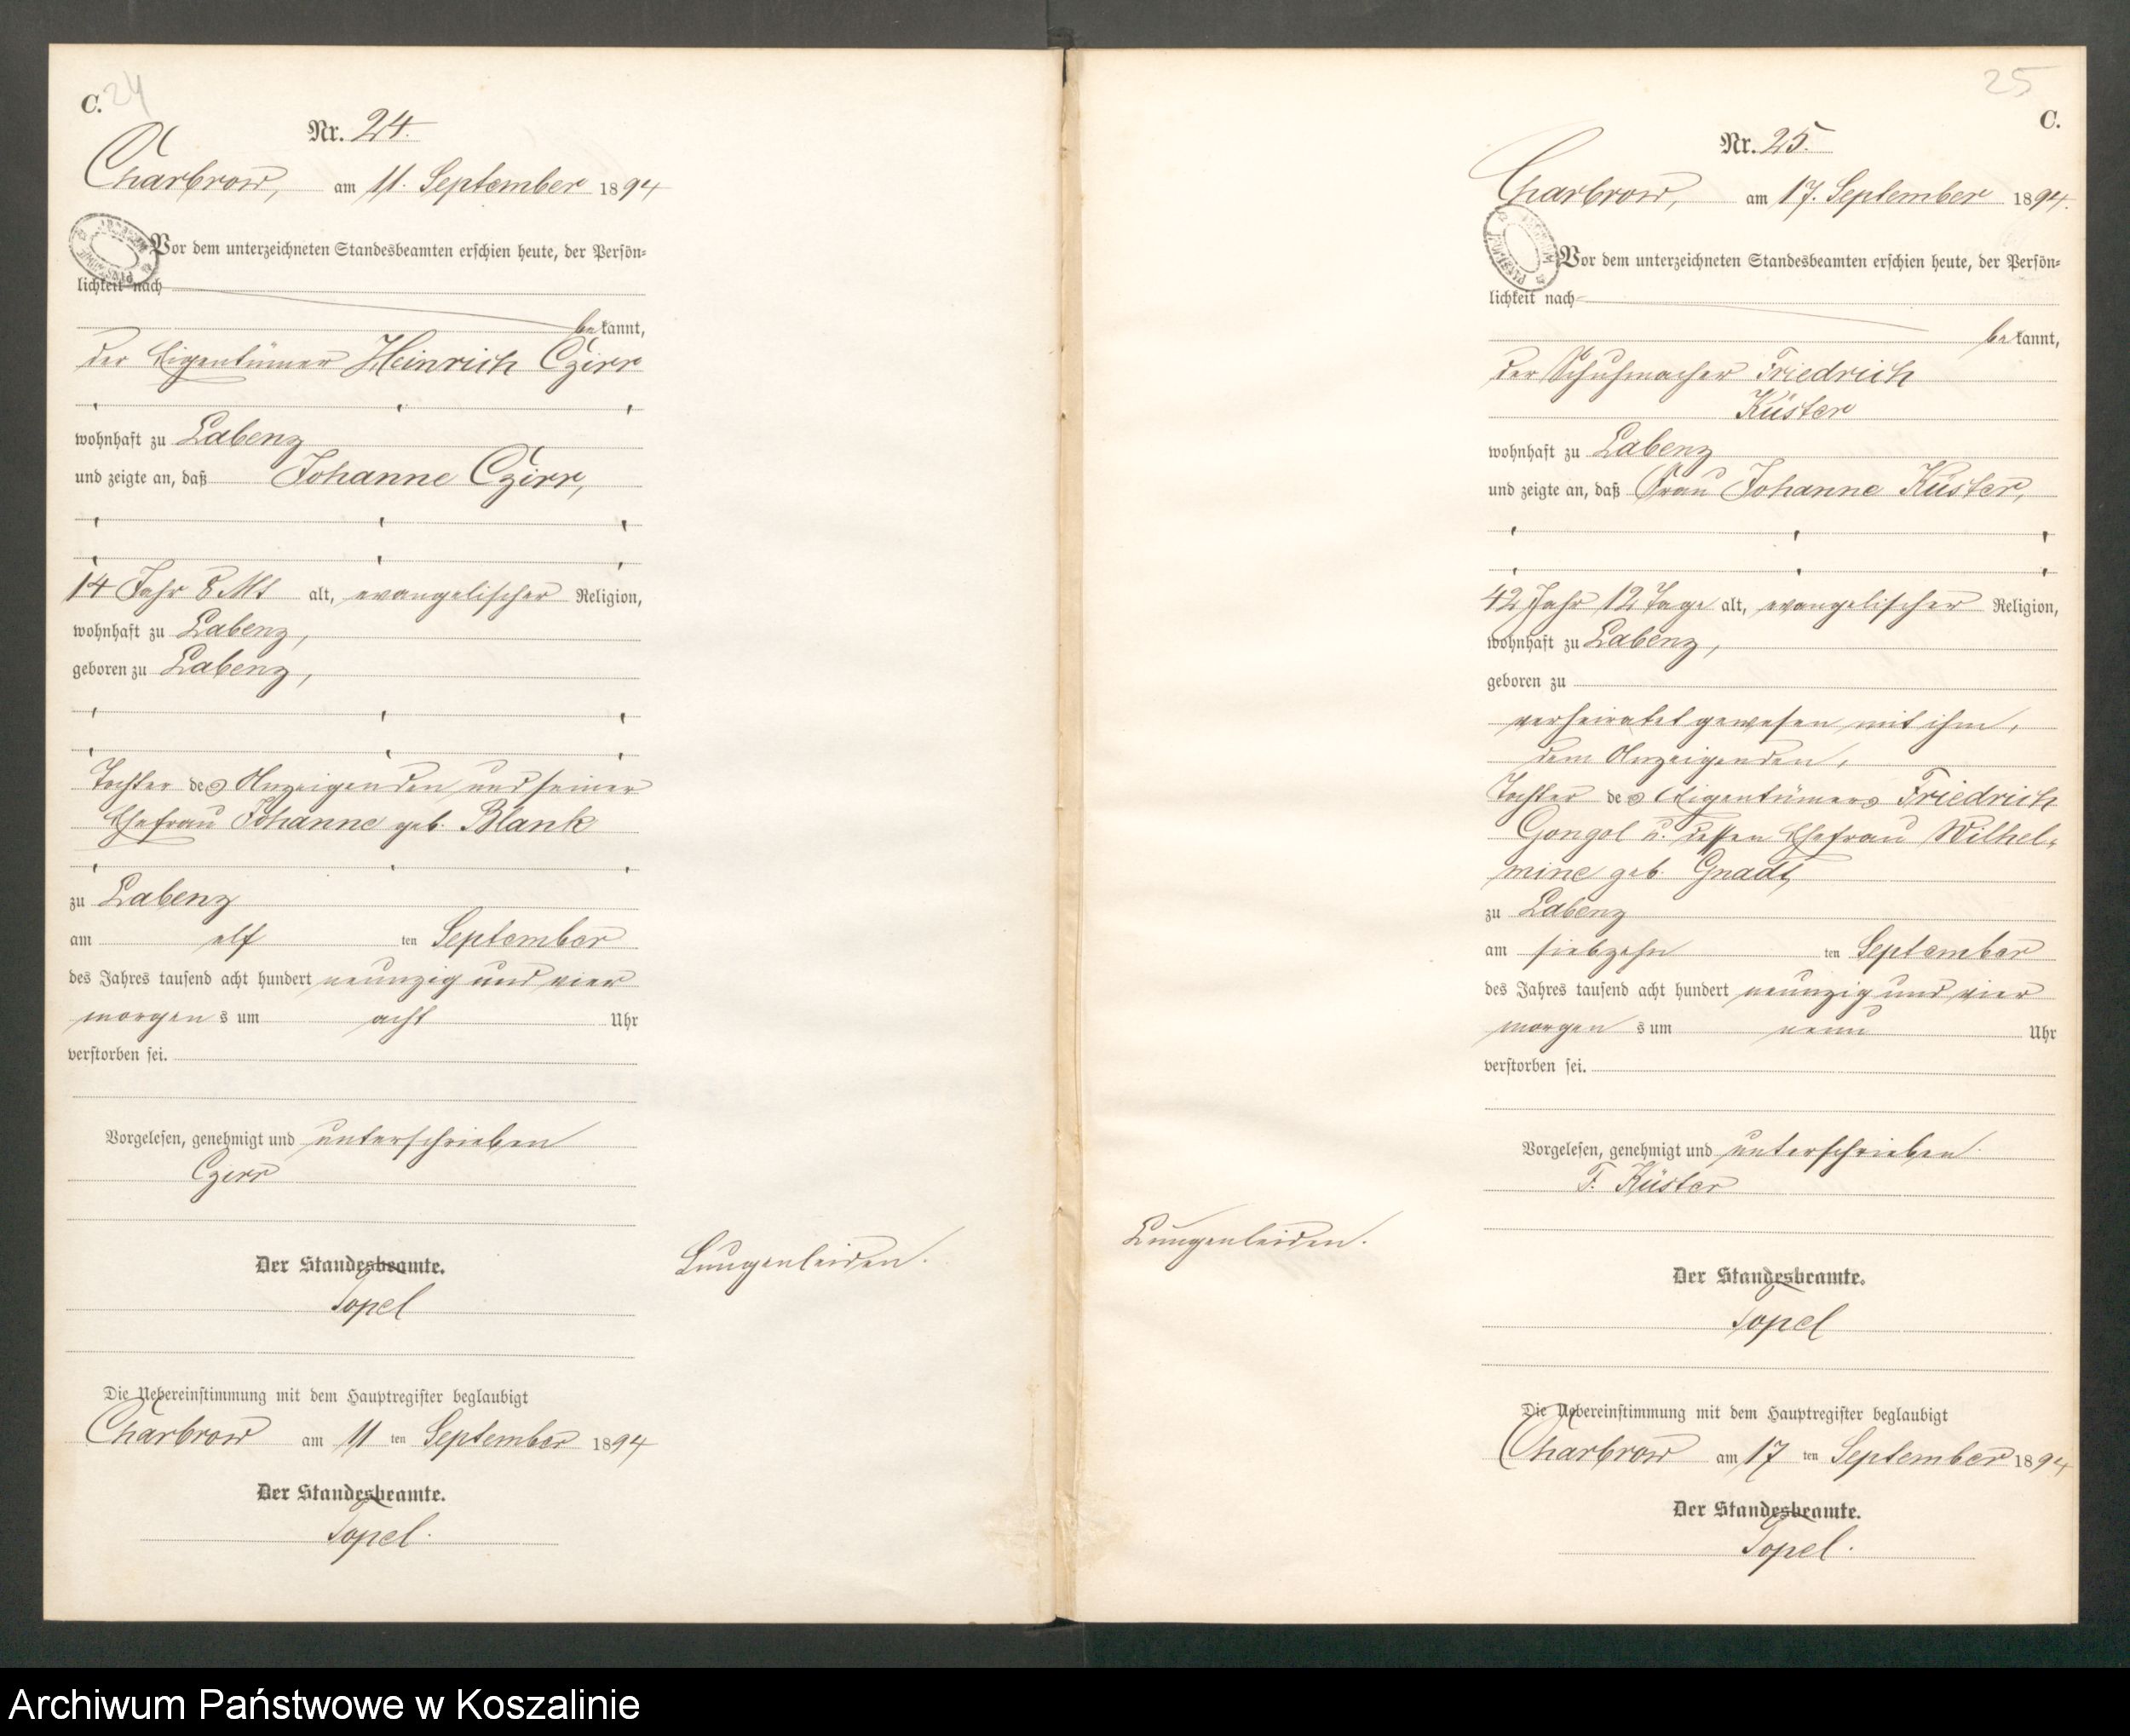 C. 24
Nr. 24.
Charbrow, am 11. September 1894
Vor dem unterzeichneten Standesbeamten erschien heute, der Persön-
lichkeit nach
bekannt,
der Eigentümer Heinrich Czirr
wohnhaft zu Labenz
und zeigte an, daß Johanne Czirr,
14 Jahr 8 Mt alt, evangelischer Religion,
wohnhaft zu Labenz,
geboren zu Labenz,
Tochter des Anzeigenden und seiner
Ehefrau Johanne geb. Blank
zu Labenz
am elf ten September
des Jahres tausend acht hundert neunzig und vier
morgens um acht Uhr
verstorben sei.
Vorgelesen, genehmigt und unterschrieben
Czirr
Der Standesbeamte.
Topel
Lungenleiden.
Die Uebereinstimmung mit dem Hauptregister beglaubigt
Charbrow am 11 ten September 1894
Der Standesbeamte.
Topel.
25
C.
Nr. 25.
Charbrow, am 17. September 1894.
Vor dem unterzeichneten Standesbeamten erschien heute, der Persön-
lichkeit nach
bekannt,
der Schuhmacher Friedrich
Küster
wohnhaft zu Labenz
und zeigte an, daß Frau Johanne Küster,
42 Jahr 12 Tage alt, evangelischer Religion,
wohnhaft zu Labenz,
geboren zu
verheiratet gewesen mit ihm,
dem Anzeigenden,
Tochter des Eigentümers Friedrich
Gongol u. dessen Ehefrau Wilhel-
mine geb. Gnadt
zu Labenz
am siebzehn ten September
des Jahres tausend acht hundert neunzig und vier
morgens um neun Uhr
verstorben sei.
Vorgelesen, genehmigt und unterschrieben.
F. Küster
Lungenleiden.
Der Standesbeamte.
Topel
Die Uebereinstimmung mit dem Hauptregister beglaubigt
Charbrow am 17 ten September 1894
Der Standesbeamte.
Topel.
Archiwum Państwowe w Koszalinie